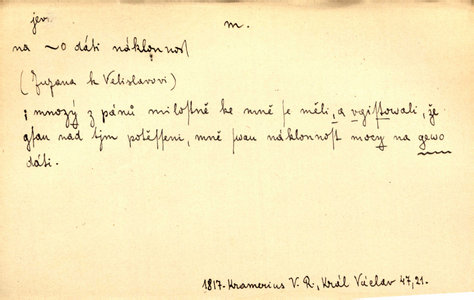 jev m.
na ~o dáti náklonnosť
(Zuzana k Velislavovi)
; mnozý z pánů milostně ke mně se měli, a vgistowali, že
gsau nad tjm potěsseni, mně swau náklonnost mocy na gewo
dáti.
1817. Kramerius V. R., Král Václav 47, 21.